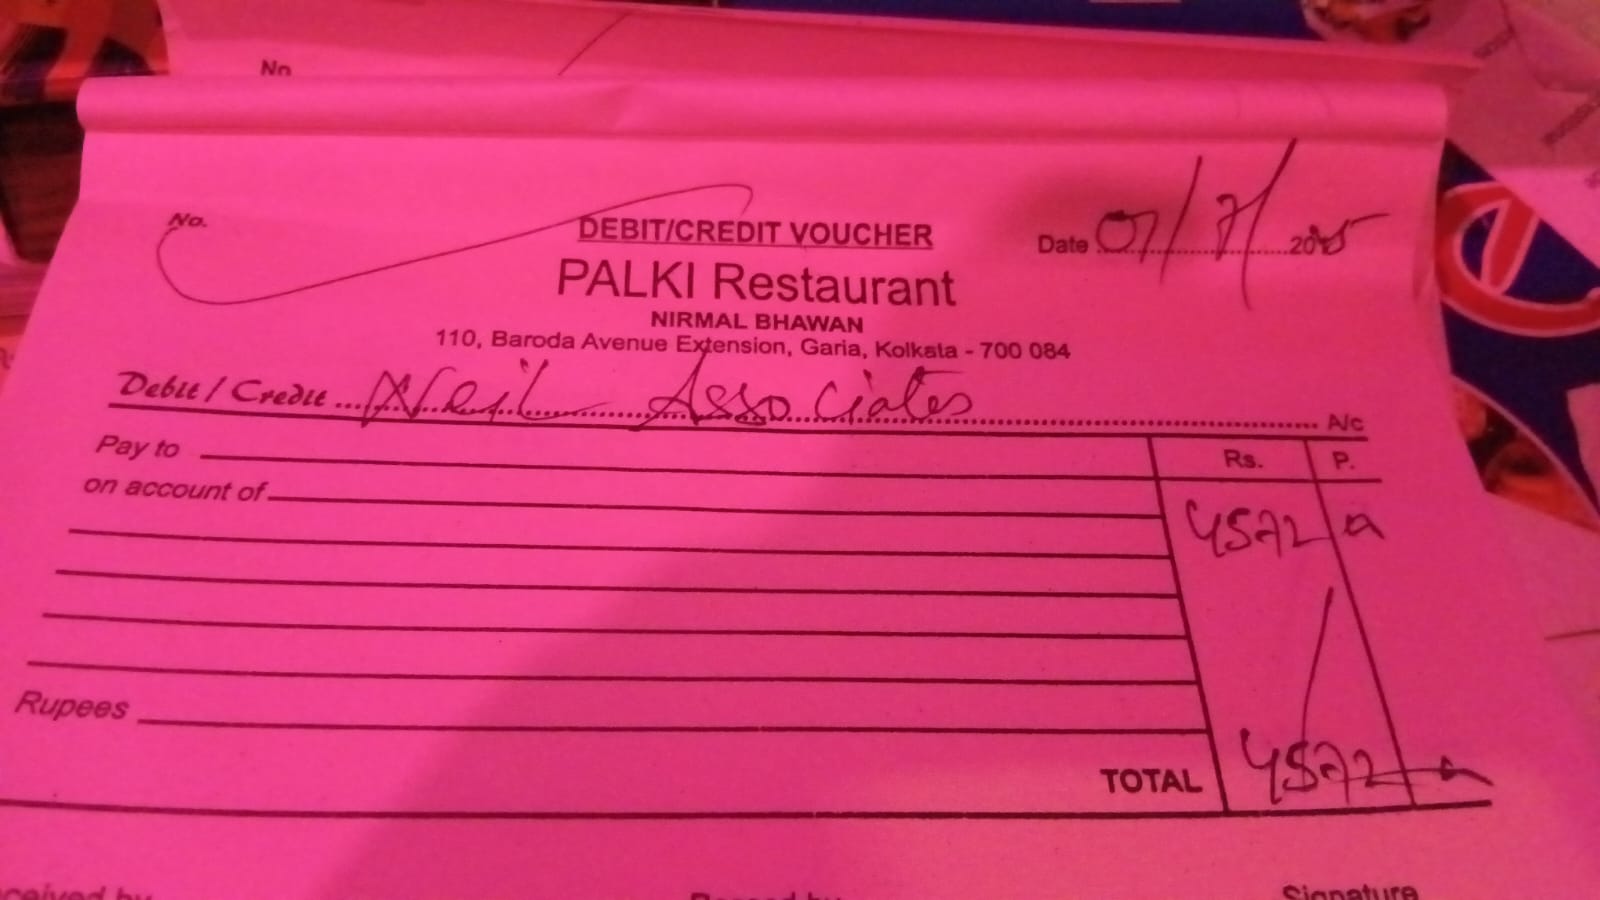 No.
No.
DEBIT/CREDIT VOUCHER
Date 07/7/2025
PALKI Restaurant
NIRMAL BHAWAN
110, Baroda Avenue Extension, Garia, Kolkata - 700 084
Debit / Credit Neil Associates A/c
Pay to Rs. P.
on account of
4572
Rupees
TOTAL 4572
Signature